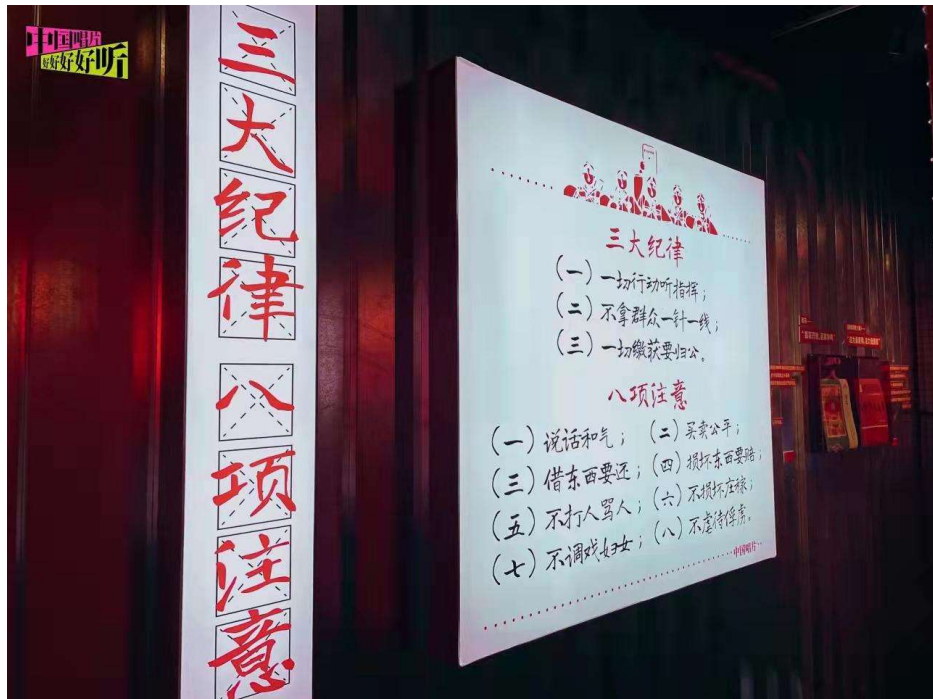 中国唱片
好好好好听
三大纪律 八项注意
三大纪律
(一)一切行动听指挥;
(二)不拿群众一针一线;
(三)一切缴获要归公。
八项注意
(一)说话和气; (二)买卖公平;
(三)借东西要还; (四)损坏东西要赔;
(五)不打人骂人; (六)不损坏庄稼;
(七)不调戏妇女; (八)不虐待俘虏。
中国唱片